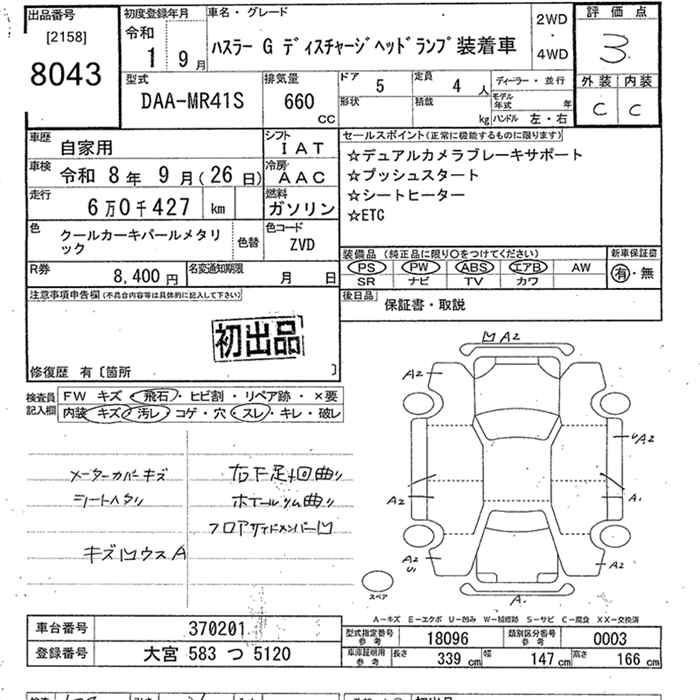 出品番号
[2158]
8043
初度登録年月
令和
1 9月
車名・グレード
ハスラー G ディスチャージヘッドランプ装着車
2WD
・
4WD
評価点
3
外装 内装
C C
型式
DAA-MR41S
排気量
660
CC
ドア 5
形状
定員 4 人
積載 kg
ディーラー・並行
モデル年式 年
ハンドル 左・右
車歴 自家用
シフト
IAT
車検 令和 8年 9月(26日)
冷房
AAC
走行 6万0千427 km
燃料
ガソリン
色 クールカーキパールメタリック
色替
色コード
ZVD
R券 8,400円
名変通知期限 月 日
セールスポイント(正常に機能するものに限ります)
☆デュアルカメラブレーキサポート
☆プッシュスタート
☆シートヒーター
☆ETC
装備品 (純正品に限り○をつけてください)
新車保証書
PS PW ABS エアB AW
SR ナビ TV カワ
有・無
後日品 保証書・取説
注意事項申告欄(不具合内容等は具体的に記入して下さい)
初出品
修復歴 有〔箇所 〕
検査員記入欄
FW キズ・飛石・ヒビ割・リペア跡・×要
内装 キズ・汚レ・コゲ・穴・スレ・キレ・破レ
メーターカバーキズ
シートヘタリ
キズ凹ウスA
右下足廻曲り
ホイールリム曲り
フロアサイドメンバー凹
凹 A2
A2
UA2
A2
A1
A2
U1
A2
A1
スペア
A-キズ E-エクボ U-凹み W-補修跡 S-サビ C-腐食 XX-交換済
車台番号 370201
登録番号 大宮 583 つ 5120
型式指定番号 参考 18096
類別区分番号 参考 0003
車庫証明用 参考 長さ 339 幅 147 高さ 166 cm
初出品